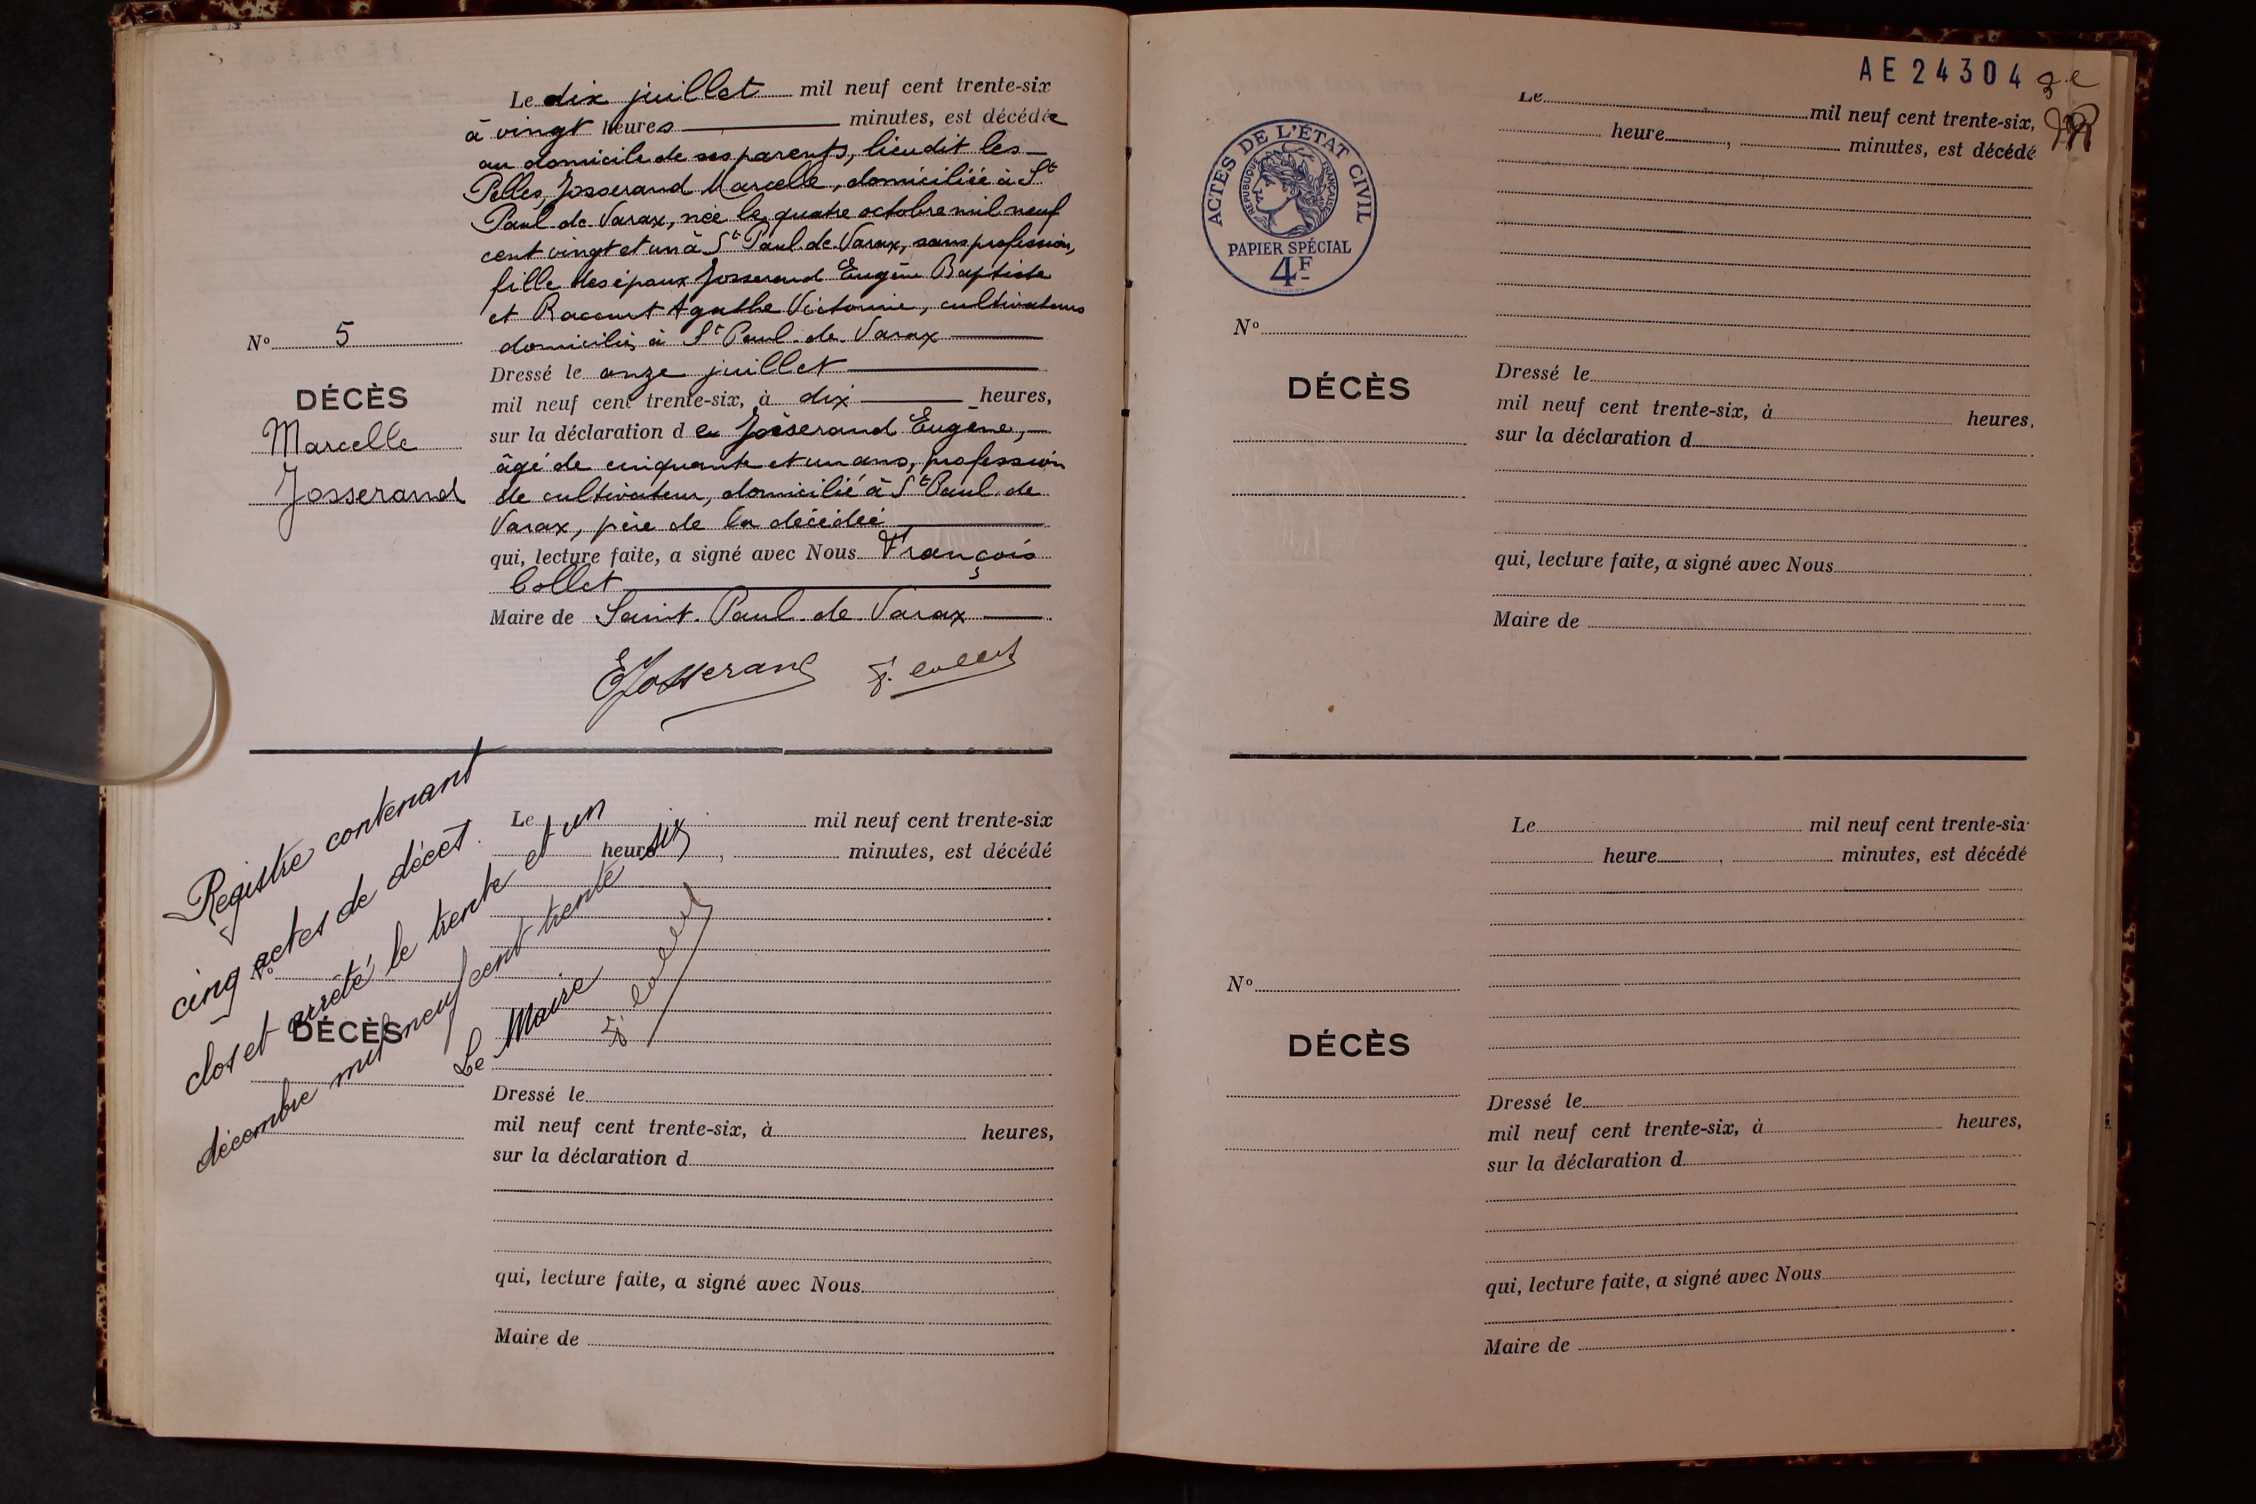 Le dix juillet mil neuf cent trente-six
à vingt heures minutes, est décédée
au domicile de ses parents, lieudit les
Pelles, Josserand Marcelle, domiciliée à St
Paul de Varax, née le quatre octobre mil neuf
cent vingt et un à St Paul de Varax, sans profession,
fille des époux Josserand Eugène Baptiste
et Racourt Agathe Victorine, cultivateurs
domiciliés à St Paul de Varax
Nº 5
DÉCÈS
Marcelle
Josserand
Dressé le onze juillet
mil neuf cent trente-six, à dix heures,
sur la déclaration d e Josserand Eugène,
âgé de cinquante et un ans, profession
de cultivateur, domicilié à St Paul de
Varax, père de la décédée
qui, lecture faite, a signé avec Nous François
Collet
Maire de Saint Paul de Varax
EJosserand F. Collet
Registre contenant
cinq actes de décès.
clos et arrêté le trente et un
décembre mil neuf cent trente six
Le Maire
F. Collet
Le mil neuf cent trente-six
heure , minutes, est décédé
Nº
DÉCÈS
Dressé le
mil neuf cent trente-six, à heures,
sur la déclaration d
qui, lecture faite, a signé avec Nous
Maire de
AE24304
3e
ACTES DE L'ÉTAT CIVIL
RÉPUBLIQUE FRANÇAISE
PAPIER SPÉCIAL
4F
Le mil neuf cent trente-six,
heure , minutes, est décédé
Nº
DÉCÈS
Dressé le
mil neuf cent trente-six, à heures,
sur la déclaration d
qui, lecture faite, a signé avec Nous
Maire de
Le mil neuf cent trente-six
heure , minutes, est décédé
Nº
DÉCÈS
Dressé le
mil neuf cent trente-six, à heures,
sur la déclaration d
qui, lecture faite, a signé avec Nous
Maire de